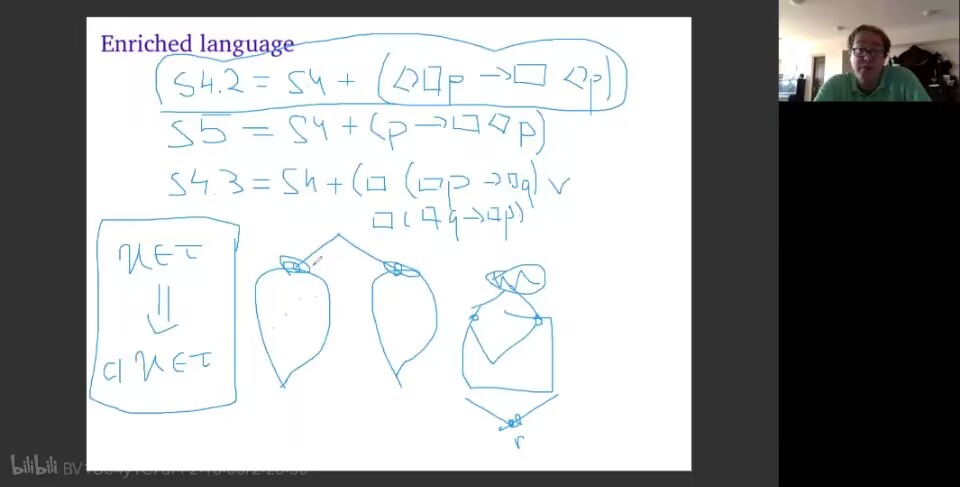 Enriched language
S4.2 = S4 + (◇□p → □◇p)
S5 = S4 + (p → □◇p)
S4.3 = S4 + (□(□p → □q) ∨
□(□q → □p))
U ∈ τ
⇓
cl U ∈ τ
r
bilibili